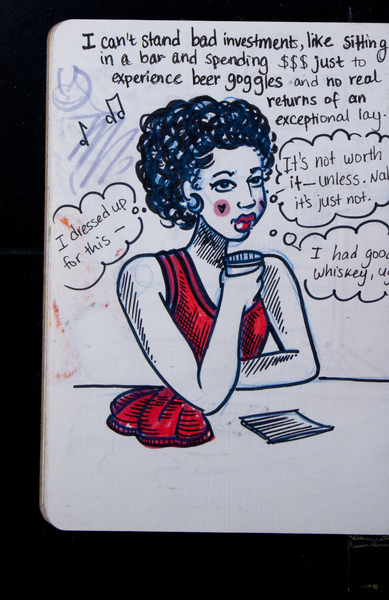 I can't stand bad investments, like sitting
in a bar and spending $$$ just to
experience beer goggles and no real
returns of an
exceptional lay.
It's not worth
it — unless. Nah
it's just not.
I dressed up
for this —
I had good
whiskey,